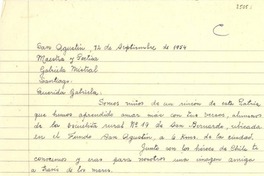 3508.
C
San Agustín, 12 de Septiembre de 1954
Maestra y Poetisa
Gabriela Mistral
Santiago.
Querida Gabriela:
Somos niños de un rincón de esta Patria
que hemos aprendido amar más con tus versos, alumnos
de la escuelita rural Nº 19 de San Bernardo, ubicada
en el Fundo San Agustín, a 6 Kms. de la ciudad.
Junto con los héroes de Chile te
conocemos y eras para nosotros una imagen amiga
a través de los mares.